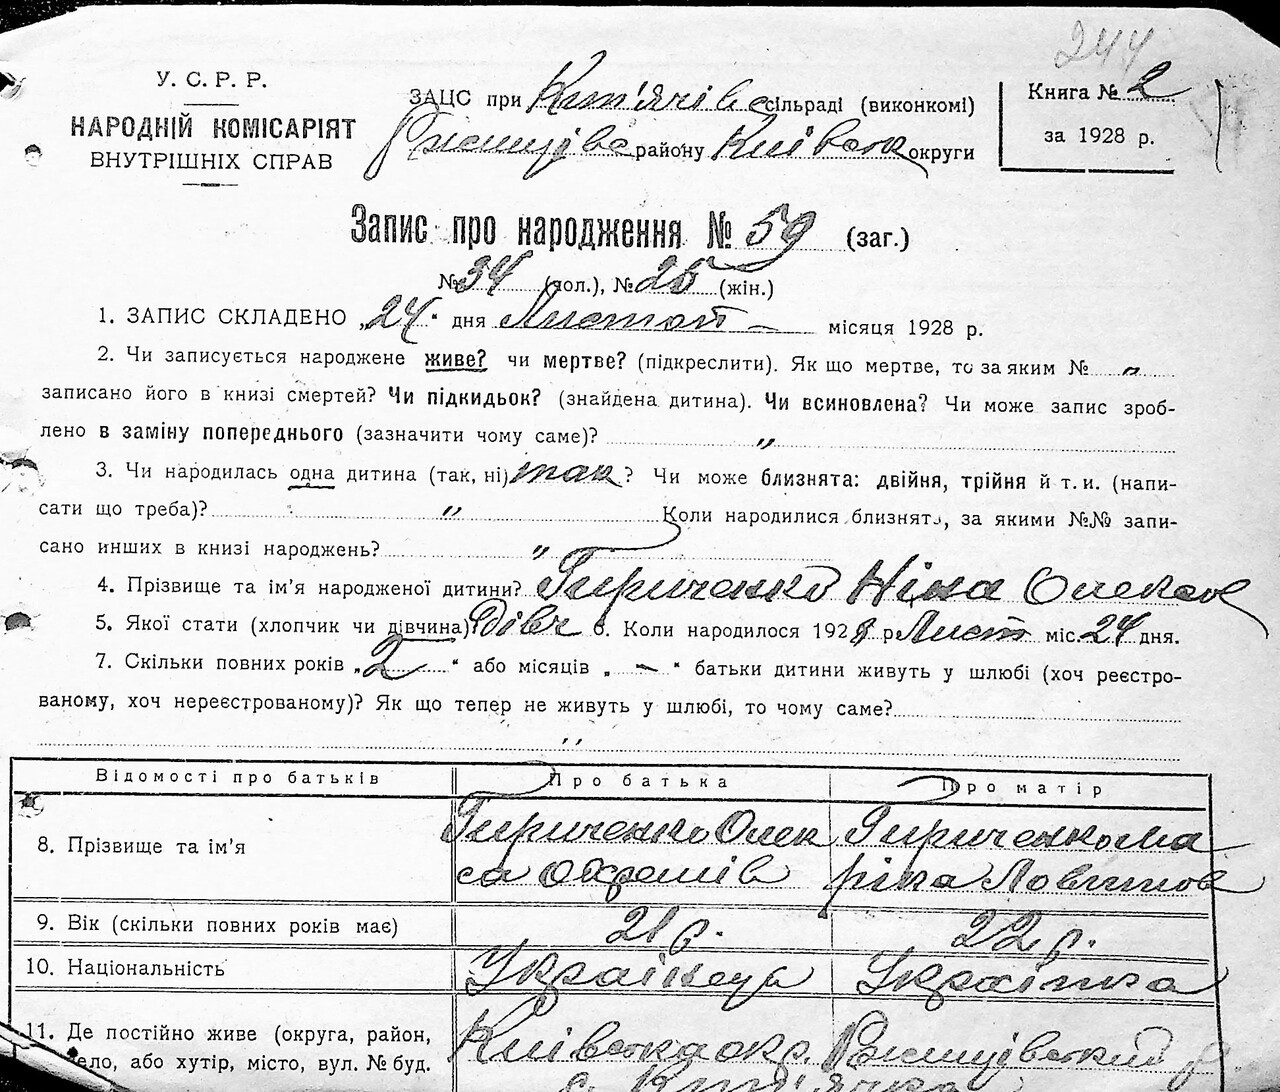 244
У. С. Р. Р.
НАРОДНІЙ КОМІСАРІЯТ
ВНУТРІШНІХ СПРАВ
ЗАЦС при Кип'ячівс сільраді (виконкомі)
Ржищівс району Київськ округи
Книга № 2
за 1928 р.
Запис про народження № 59 (заг.)
№ 34 (чол.), № 25 (жін.)
1. ЗАПИС СКЛАДЕНО „24“ дня Листоп – місяця 1928 р.
2. Чи записується народжене живе? чи мертве? (підкреслити). Як що мертве, то за яким № „
записано його в книзі смертей? Чи підкидьок? (знайдена дитина). Чи всиновлена? Чи може запис зроб-
лено в заміну попереднього (зазначити чому саме)? „
3. Чи народилась одна дитина (так, ні) так? Чи може близнята: двійня, трійня й т. и. (напи-
сати що треба)? „ Коли народилися близнята, за якими №№ запи-
сано инших в книзі народжень? „
4. Прізвище та ім'я народженої дитини? Гириченко Ніна Олексов
5. Якої стати (хлопчик чи дівчина) дівч 6. Коли народилося 1928 р Лист міс. 24 дня.
7. Скільки повних років „2“ або місяців „ – “ батьки дитини живуть у шлюбі (хоч реєстро-
ваному, хоч нереєстрованому)? Як що тепер не живуть у шлюбі, то чому саме?
„
Відомості про батьків Про батька Про матір
8. Прізвище та ім'я Гириченко Олек Гириченко Ма
са Охремів ріка Логвинов
9. Вік (скільки повних років має) 21 р. 22 р.
10. Національність Українець Українка
11. Де постійно живе (округа, район, Київська окр. Ржищівський р
село, або хутір, місто, вул. № буд. с. Кип'ячка